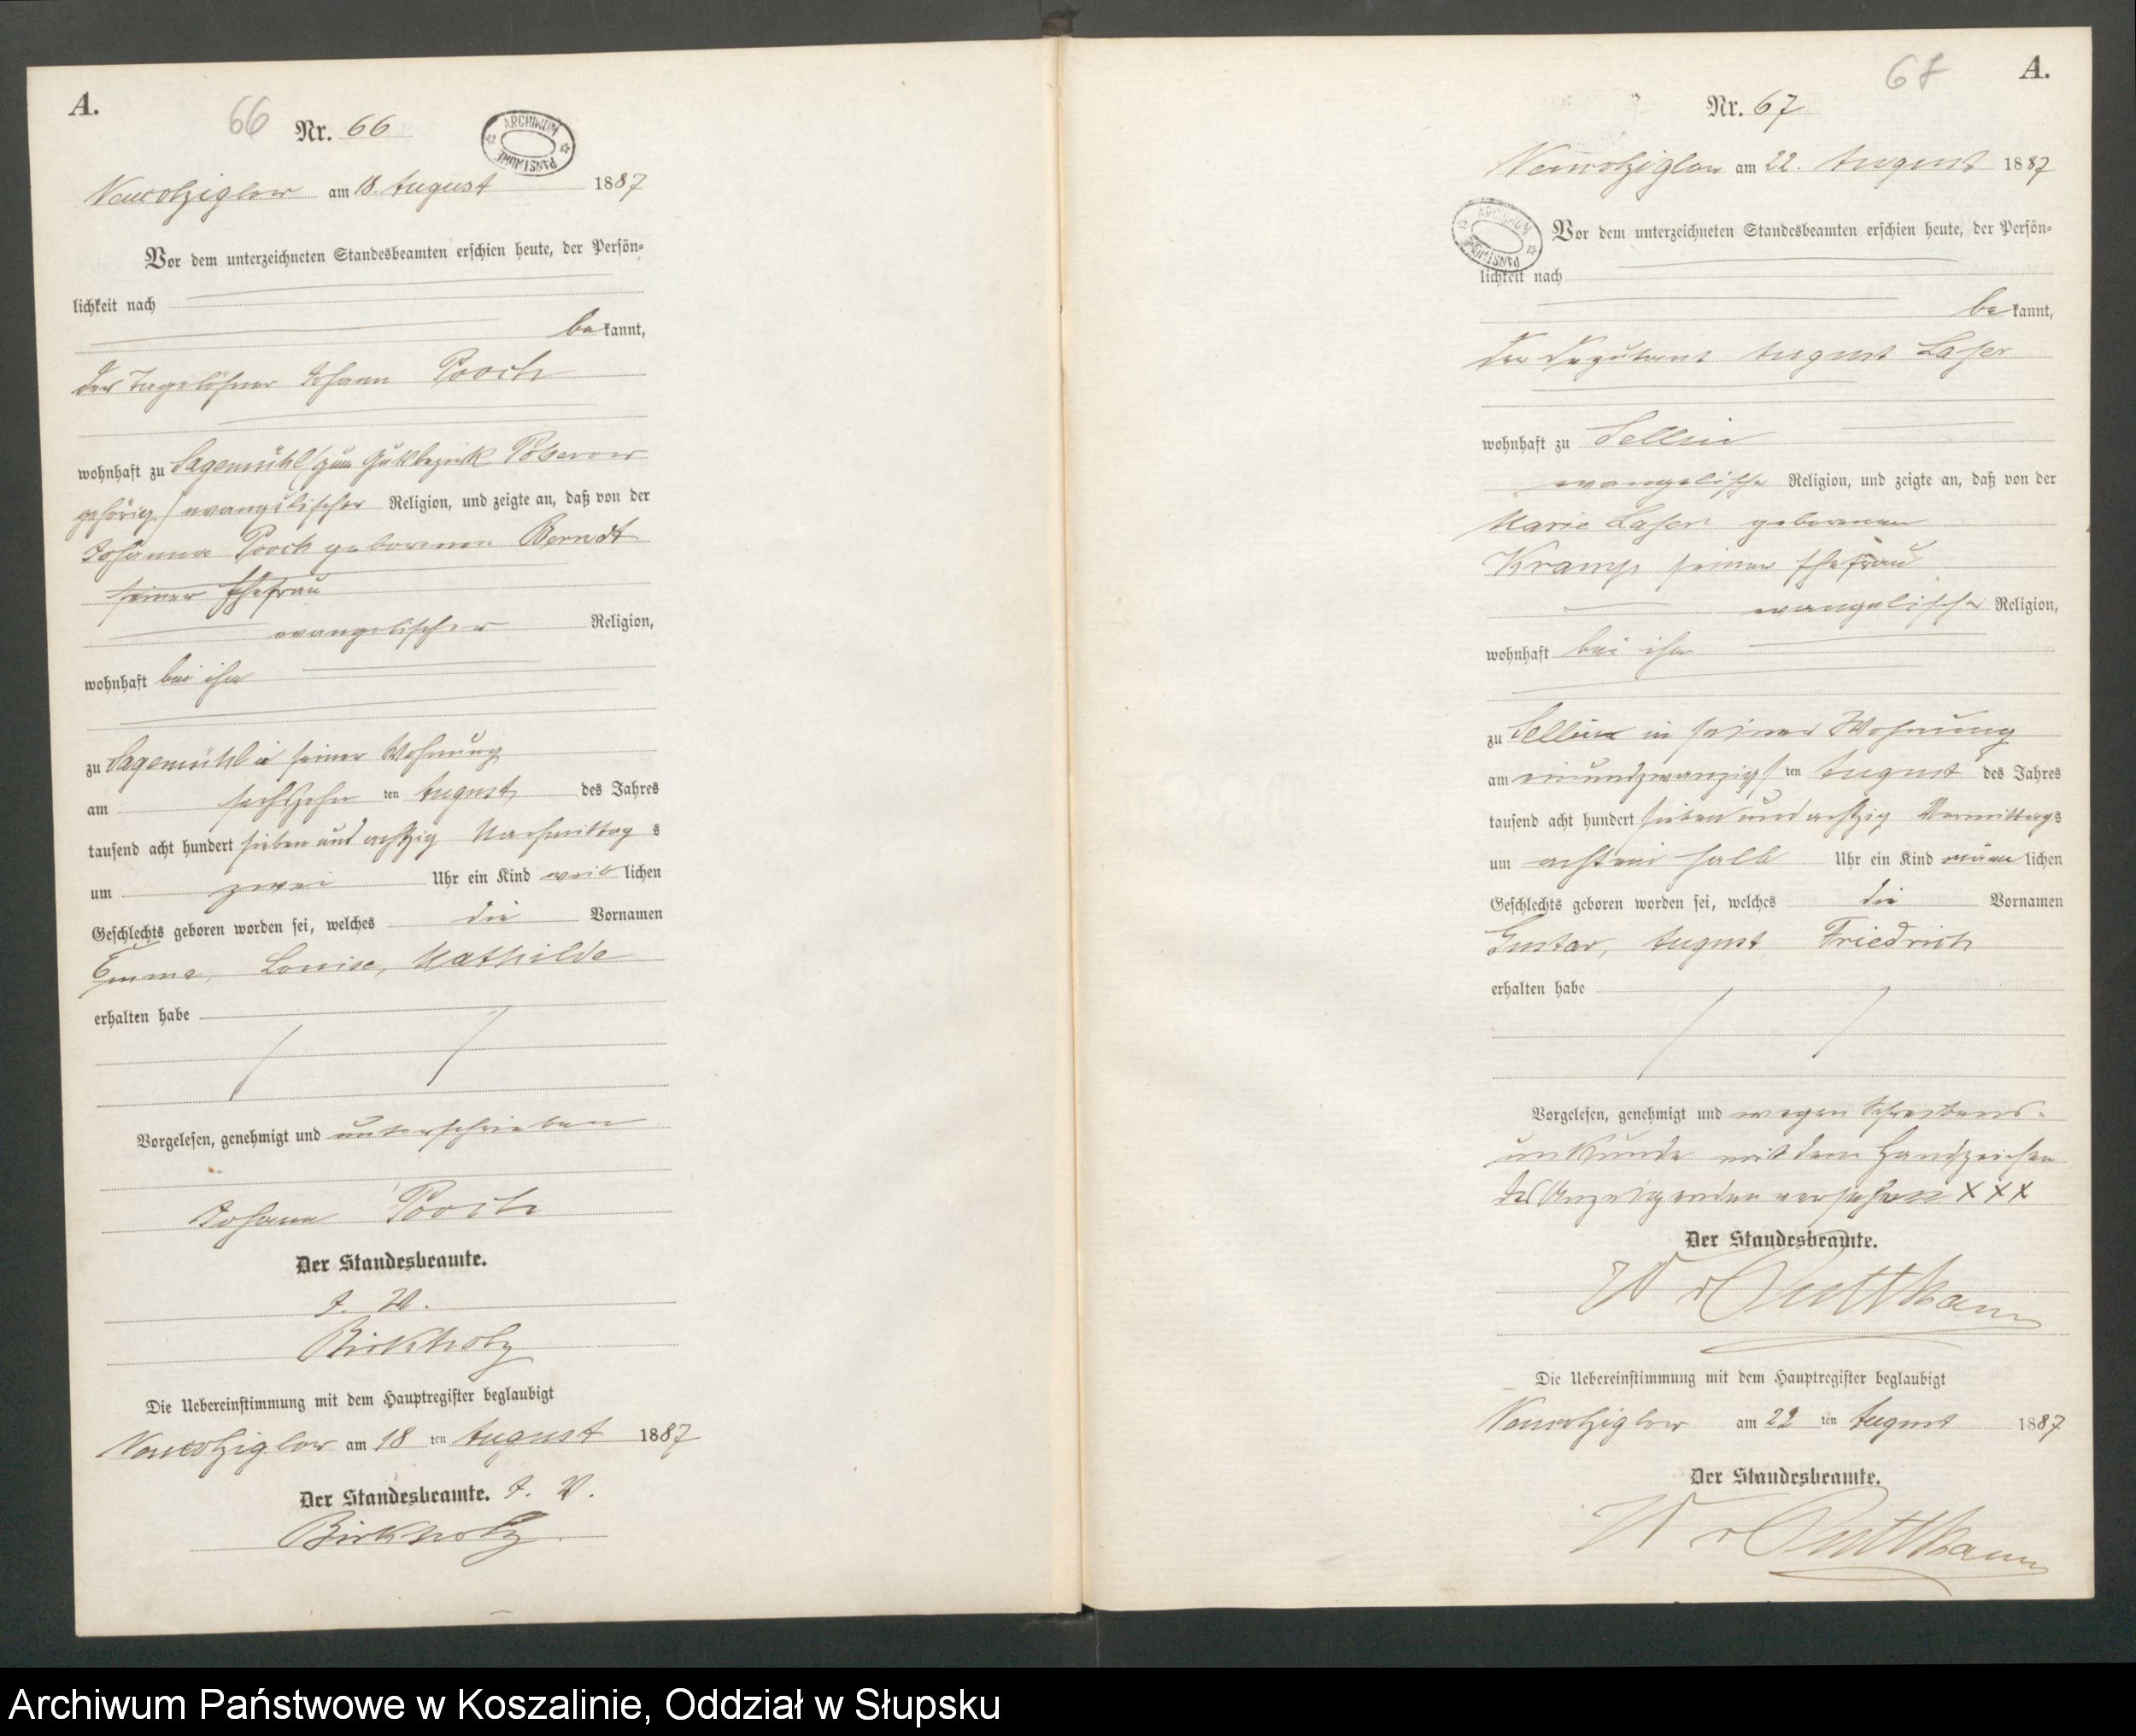 A.
66
Nr. 66
ARCHIWUM PAŃSTWOWE
Neuwolziglow am 18. August 1887
Vor dem unterzeichneten Standesbeamten erschien heute, der Persön-
lichkeit nach
bekannt,
der Tagelöhner Johann Pooch
wohnhaft zu Sagemühl (zum Gutsbezirk Poberow
gehörig) evangelischer Religion, und zeigte an, daß von der
Johanna Pooch geborenen Berndt
seiner Ehefrau
evangelischer Religion,
wohnhaft bei ihm
zu Sagemühl in seiner Wohnung
am sechszehn ten August des Jahres
tausend acht hundert sieben und achtzig Nachmittags
um zwei Uhr ein Kind weiblichen
Geschlechts geboren worden sei, welches die Vornamen
Emma, Louise, Mathilde
erhalten habe
Vorgelesen, genehmigt und unterschrieben
Johann Pooch
Der Standesbeamte.
I. V.
Birkholz
Die Uebereinstimmung mit dem Hauptregister beglaubigt
Neuwolziglow am 18 ten August 1887
Der Standesbeamte. I. V.
Birkholz.
67
A.
Nr. 67
Neuwolziglow am 22. August 1887
ARCHIWUM PAŃSTWOWE
Vor dem unterzeichneten Standesbeamten erschien heute, der Persön-
lichkeit nach
bekannt,
der Deputant August Laser
wohnhaft zu Sellin
evangelischer Religion, und zeigte an, daß von der
Marie Laser geborenen
Kramp seiner Ehefrau
evangelischer Religion,
wohnhaft bei ihm
zu Sellin in seiner Wohnung
am einundzwanzigsten August des Jahres
tausend acht hundert sieben und achtzig Vormittags
um achtein halb Uhr ein Kind männlichen
Geschlechts geboren worden sei, welches die Vornamen
Gustav, August Friedrich
erhalten habe
Vorgelesen, genehmigt und wegen Schreibens-
unkunde mit dem Handzeichen
des Anzeigenden versehen XXX
Der Standesbeamte.
W v Puttkamer
Die Uebereinstimmung mit dem Hauptregister beglaubigt
Neuwolziglow am 22 ten August 1887
Der Standesbeamte.
W v Puttkamer
Archiwum Państwowe w Koszalinie, Oddział w Słupsku